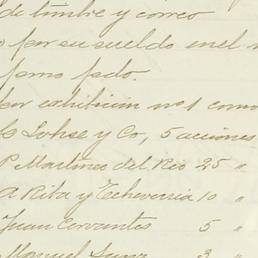 de timbre y correo
o por su sueldo en el
como pdo.
por exhibicion no 1 como
Lohse y Co, 5 acciones
P. Martinez del Rio 25 "
A Rita y Echeverria 10 "
Juan Cervantes 5 "
Manuel Sainz 3 "